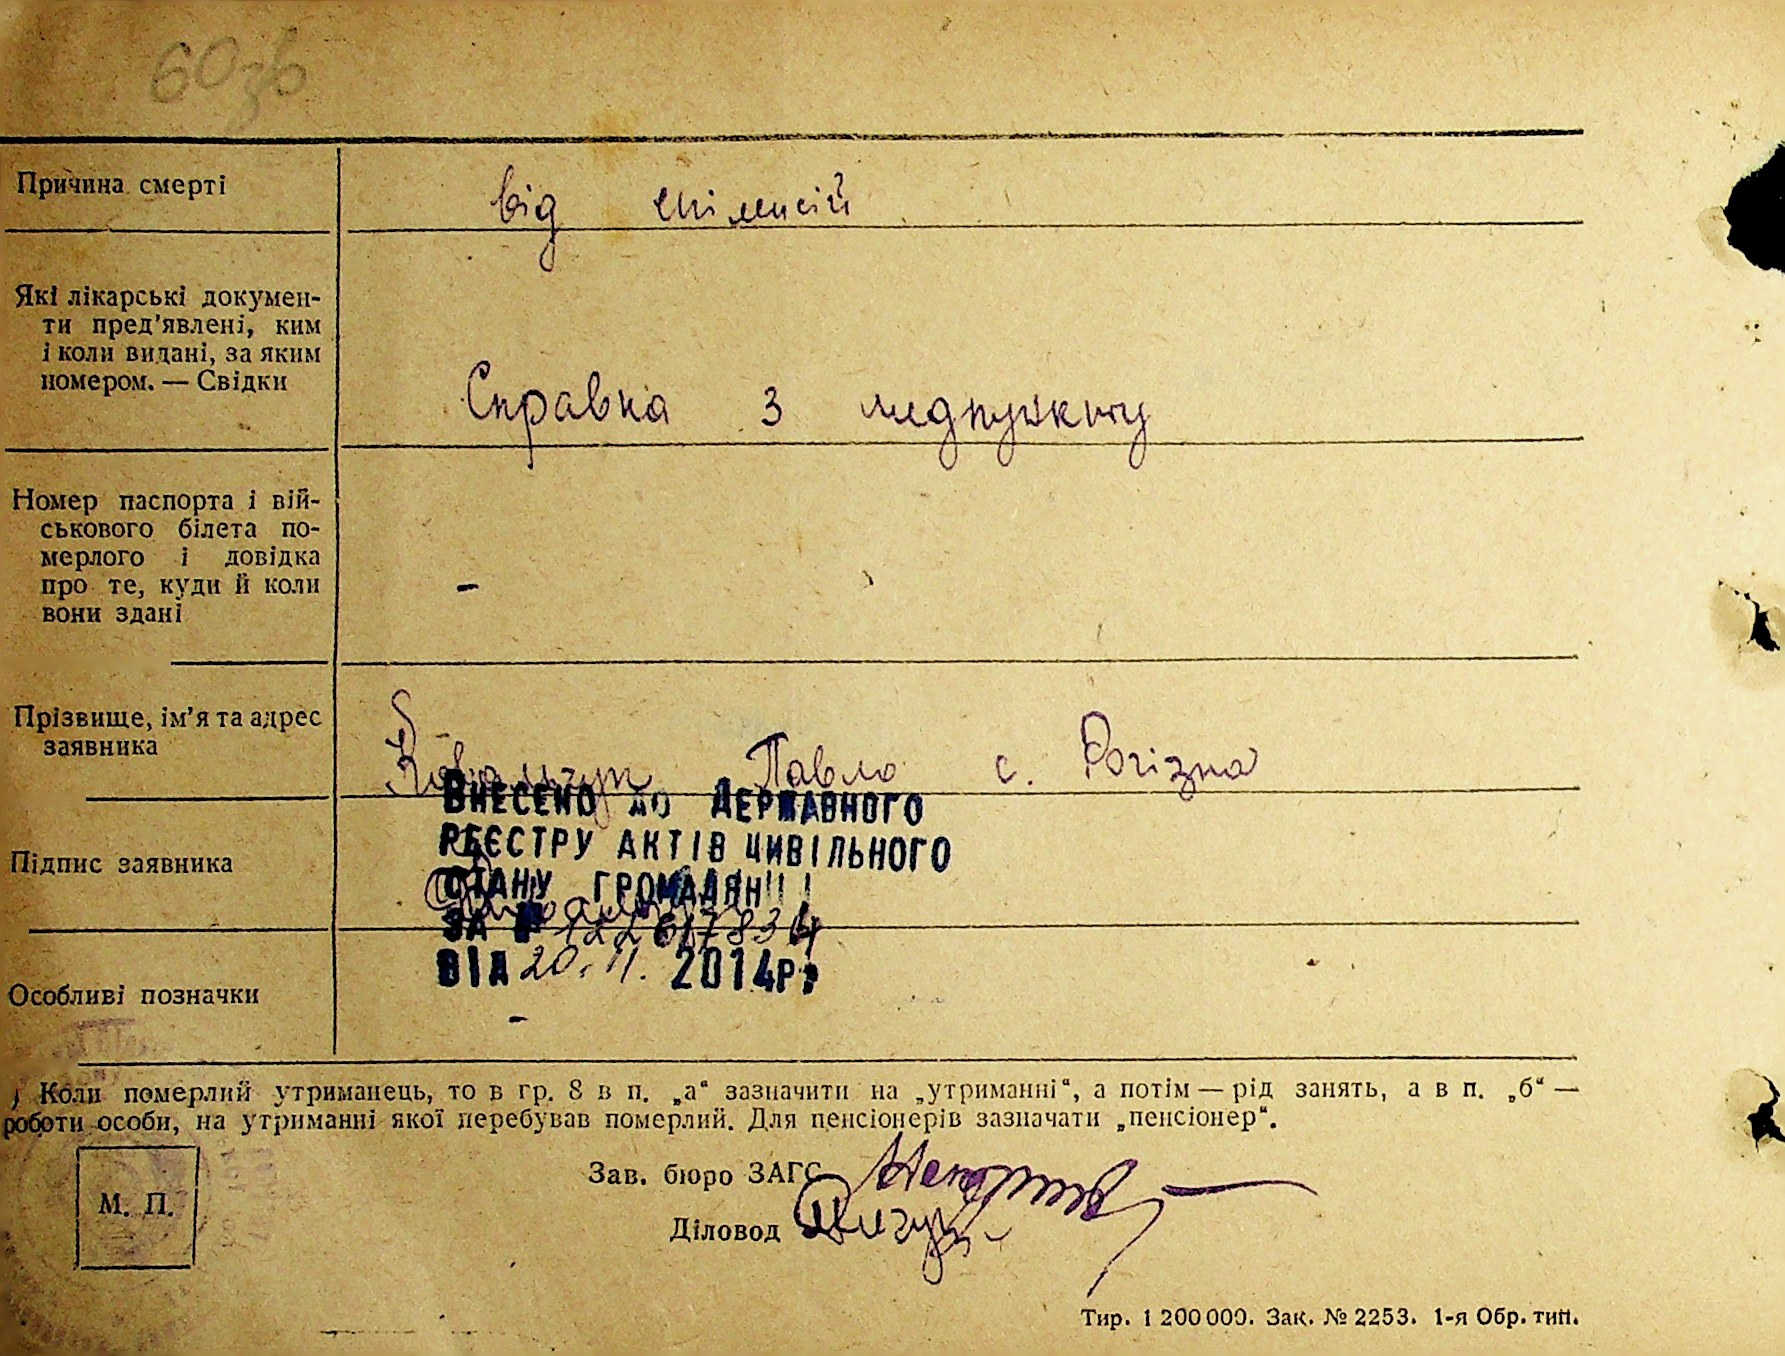 60зв
Причина смерті
від епілепсій
Які лікарські докумен-
ти пред'явлені, ким
і коли видані, за яким
номером. — Свідки
Справка з медпункту
Номер паспорта і вій-
ськового білета по-
мерлого і довідка
про те, куди й коли
вони здані
-
Прізвище, ім'я та адрес
заявника
Ковальчук Павло с. Рогізна
Внесено до Державного
реєстру актів цивільного
Підпис заявника
стану громадян
за № 12261783
від 20.11. 2014р.
Особливі позначки
-
Коли померлий утриманець, то в гр. 8 в п. „а“ зазначити на „утриманні“, а потім — рід занять, а в п. „б“ —
роботи особи, на утриманні якої перебував померлий. Для пенсіонерів зазначати „пенсіонер“.
М. П.
Зав. бюро ЗАГС
Діловод
Тир. 1 200 000. Зак. № 2253. 1-я Обр. тип.